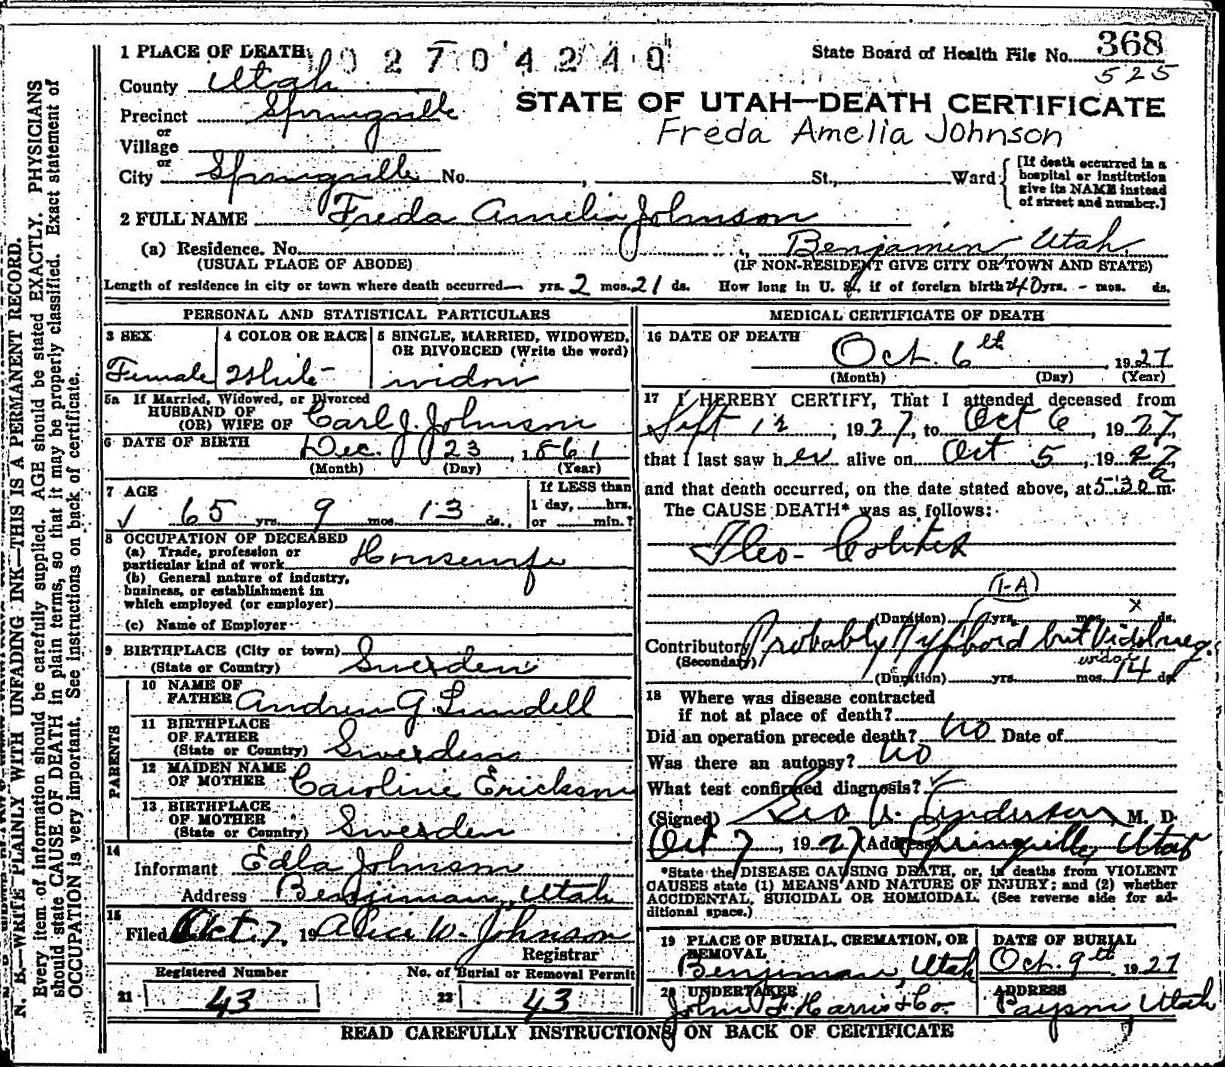 State Board of Health File No. 368
525
0 2 7 0 4 2 4 0
STATE OF UTAH—DEATH CERTIFICATE
Freda Amelia Johnson
1 PLACE OF DEATH
County Utah
Precinct Springville
or
Village
or
City Springville No. , St., Ward
[If death occurred in a
hospital or institution
give its NAME instead
of street and number.]
2 FULL NAME Freda Amelia Johnson
(a) Residence. No. , Benjamin, Utah
(USUAL PLACE OF ABODE) (IF NON-RESIDENT GIVE CITY OR TOWN AND STATE)
Length of residence in city or town where death occurred— yrs. 2 mos. 21 ds. How long in U. S., if of foreign birth? 40 yrs. - mos. ds.
PERSONAL AND STATISTICAL PARTICULARS
3 SEX
Female
4 COLOR OR RACE
White
5 SINGLE, MARRIED, WIDOWED,
OR DIVORCED (Write the word)
widow
5a If Married, Widowed, or Divorced
HUSBAND OF
(OR) WIFE OF Carl J. Johnson
6 DATE OF BIRTH Dec. 23, 1861
(Month) (Day) (Year)
7 AGE
65 yrs. 9 mos. 13 ds.
If LESS than
1 day, hrs.
or min.?
8 OCCUPATION OF DECEASED
(a) Trade, profession or
particular kind of work Housewife
(b) General nature of industry,
business, or establishment in
which employed (or employer)
(c) Name of Employer
9 BIRTHPLACE (City or town)
(State or Country) Sweden
PARENTS
10 NAME OF
FATHER Andrew G. Lundell
11 BIRTHPLACE
OF FATHER
(State or Country) Sweden
12 MAIDEN NAME
OF MOTHER Caroline Erickson
13 BIRTHPLACE
OF MOTHER
(State or Country) Sweden
14
Informant Edla Johnson
Address Benjiman, Utah
15
Filed Oct. 7, 19 Alice W. Johnson
Registrar
Registered Number No. of Burial or Removal Permit
21 43 22 43
MEDICAL CERTIFICATE OF DEATH
16 DATE OF DEATH
Oct. 6th, 1927
(Month) (Day) (Year)
17 I HEREBY CERTIFY, That I attended deceased from
Sept 12, 1927, to Oct 6, 1927,
that I last saw her alive on Oct 5, 1927,
and that death occurred, on the date stated above, at 5:30 a m.
The CAUSE DEATH* was as follows:
Ileo-Colitis
(1-A)
(Duration) yrs. mos. ds.
Contributory Probably Typhoid but
(Secondary)
(Duration) yrs. mos. 14 ds.
18 Where was disease contracted
if not at place of death?
Did an operation precede death? no Date of
Was there an autopsy? no
What test confirmed diagnosis?
(Signed) Geo A. Anderson, M. D.
Oct 7, 1927 (Address) Springville, Utah
*State the DISEASE CAUSING DEATH, or, in deaths from VIOLENT
CAUSES state (1) MEANS AND NATURE OF INJURY; and (2) whether
ACCIDENTAL, SUICIDAL OR HOMICIDAL. (See reverse side for ad-
ditional space.)
19 PLACE OF BURIAL, CREMATION, OR
REMOVAL
Benjiman, Utah
DATE OF BURIAL
Oct. 9th 1927
20 UNDERTAKER
John F. Harris & Co.
ADDRESS
Payson, Utah
READ CAREFULLY INSTRUCTIONS ON BACK OF CERTIFICATE
N. B.—WRITE PLAINLY WITH UNFADING INK—THIS IS A PERMANENT RECORD.
Every item of information should be carefully supplied. AGE should be stated EXACTLY. PHYSICIANS
should state CAUSE OF DEATH in plain terms, so that it may be properly classified. Exact statement of
OCCUPATION is very important. See instructions on back of certificate.